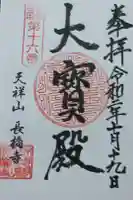 奉拜 令和二年十月十九日
大寳殿
第十六
天祥山 長福寺